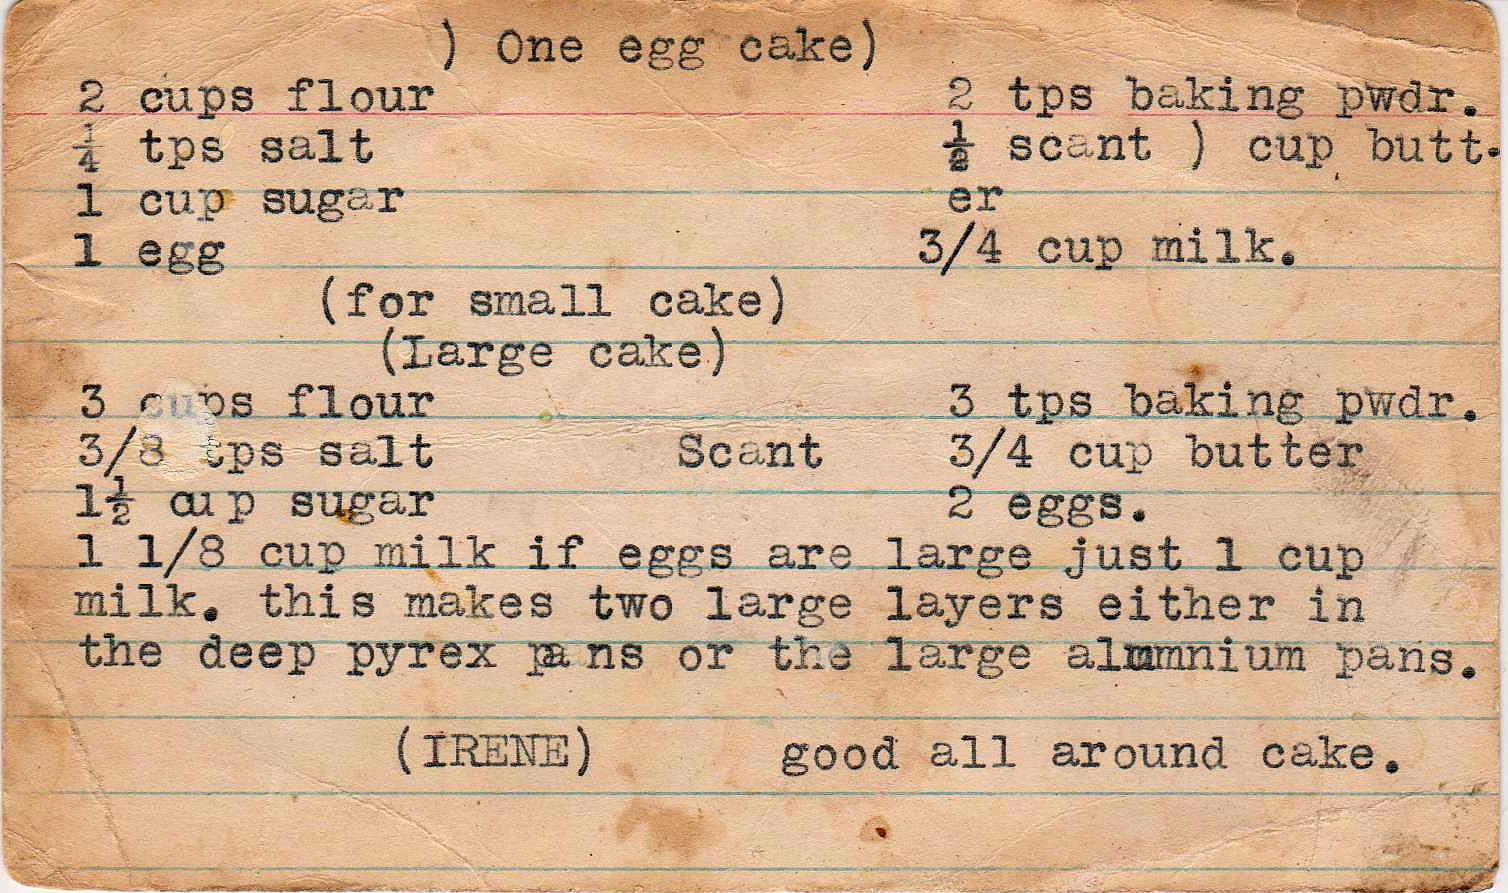 ) One egg cake)
2 cups flour 2 tps baking pwdr.
¼ tps salt ½ scant ) cup butt-
1 cup sugar er
1 egg 3/4 cup milk.
(for small cake)
(Large cake)
3 cups flour 3 tps baking pwdr.
3/8 tps salt Scant 3/4 cup butter
1½ cup sugar 2 eggs.
1 1/8 cup milk if eggs are large just 1 cup
milk. this makes two large layers either in
the deep pyrex pans or the large alumnium pans.
(IRENE) good all around cake.